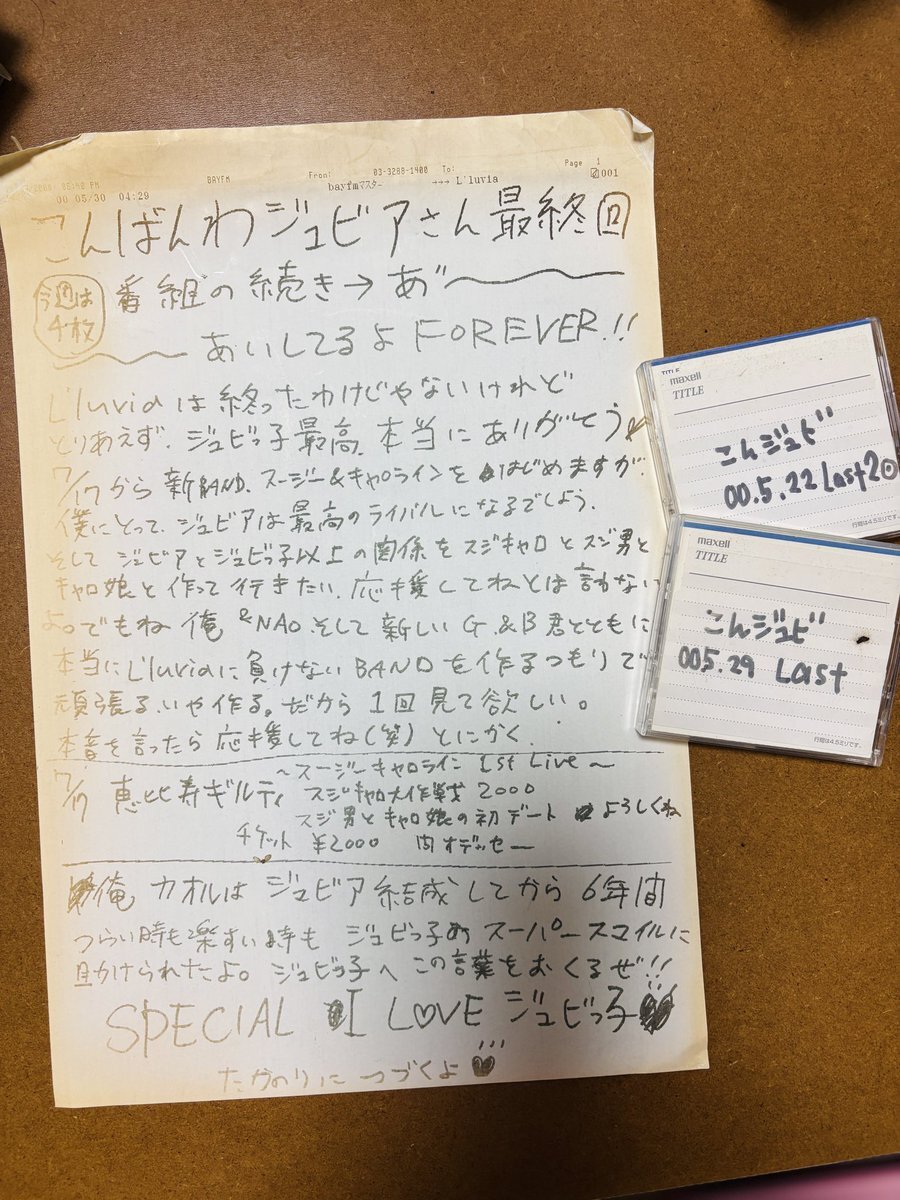 BAYFM From: 03-3288-1400 To: Page 1
00 05/30 04:29 bayfmマスター →→→ L'luvia 001
こんばんわジュビアさん最終回
今週は
4枚
番組の続き→あ゛〜
〜あいしてるよ FOREVER!!
L'luviaは終ったわけじゃないけれど
とりあえず、ジュビっ子最高、本当にありがとう
7/17から新BAND、スージー&キャロラインをはじめますが、
僕にとって、ジュビアは最高のライバルになるでしょう。
そして ジュビアとジュビっ子以上の関係をスジキャロとスジ男と
キャロ娘と作って行きたい、応援してねとは言わない
よ。でもね 俺&NAO、そして新しいG.&B君とともに
本当にL'luviaに負けないBANDを作るつもりで
頑張る、いや作る。だから1回見て欲しい。
本音を言ったら応援してね(笑) とにかく
〜スージーキャロライン 1st Live〜
7/17 恵比寿ギルティ スジキャロ大作戦2000
スジ男とキャロ娘の初デート よろしくね
チケット ¥2000 問 オデッセー
俺 カオルは ジュビア結成してから6年間
つらい時も楽すい時も ジュビっ子の スーパースマイルに
助けられたよ。ジュビっ子へ この言葉をおくるぜ!!
SPECIAL I L♡VE ジュビっ子
たかのりに つづくよ
maxell
TITLE
こんジュビ
00.5.22 Last2◎
行間は4.5ミリです。
maxell
TITLE
こんジュビ
005.29 Last
行間は4.5ミリです。